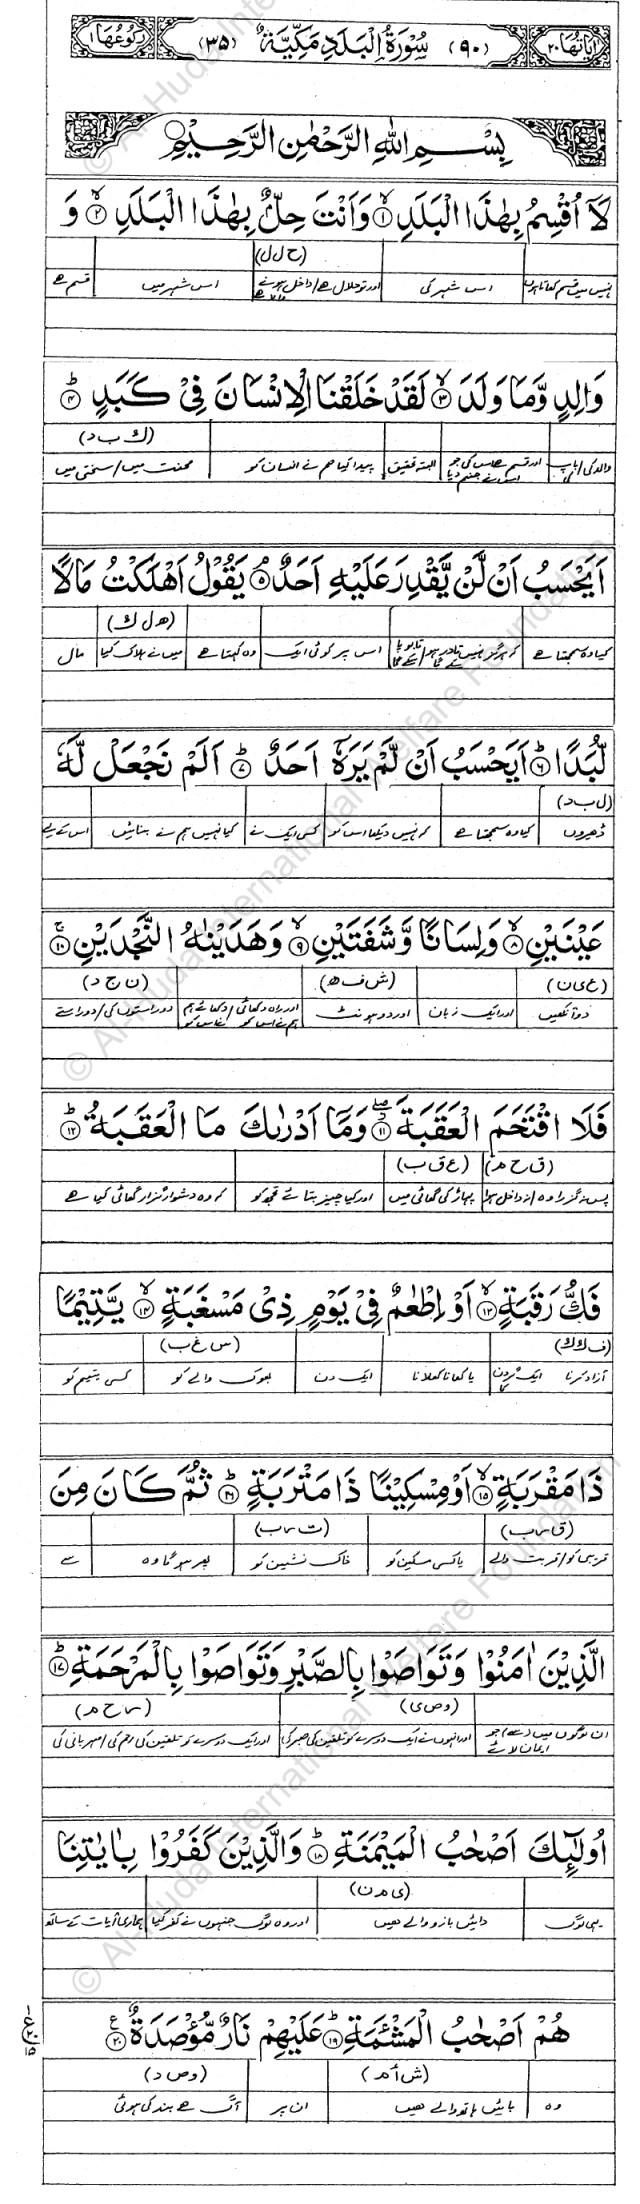 اٰیاتھا ۲۰ (۹۰) سُوْرَةُ الْبَلَدِ مَكِّيَّةٌ (۳۵) رکوعھا ۱
بِسْمِ اللّٰهِ الرَّحْمٰنِ الرَّحِيْمِ
لَآ اُقْسِمُ بِهٰذَا الْبَلَدِ ۙ۱ وَاَنْتَ حِلٌّۢ بِهٰذَا الْبَلَدِ ۙ۲ وَ
(ح ل ل)
نہیں میں قسم کھاتا ہوں اس شہر کی اور تو حلال ہے/داخل ہونے والا ہے اس شہر میں قسم ہے
وَالِدٍ وَّمَا وَلَدَ ۙ۳ لَقَدْ خَلَقْنَا الْاِنْسَانَ فِيْ كَبَدٍ ۭ۴
(ك ب د)
والد کی/باپ کی اور قسم ہے اس کی جو اس نے جنم دیا البتہ تحقیق پیدا کیا ہم نے انسان کو محنت میں/سختی میں
اَيَحْسَبُ اَنْ لَّنْ يَّقْدِرَ عَلَيْهِ اَحَدٌ ۘ۵ يَقُوْلُ اَهْلَكْتُ مَالًا
(ه ل ك)
کیا وہ سمجھتا ہے کہ ہرگز نہیں قادر ہو سکے گا/قابو پا سکے گا اس پر کوئی ایک وہ کہتا ہے میں نے ہلاک کیا مال
لُّبَدًا ۭ۶ اَيَحْسَبُ اَنْ لَّمْ يَرَهٗٓ اَحَدٌ ۭ۷ اَلَمْ نَجْعَلْ لَّهٗ
(ل ب د)
ڈھیروں کیا وہ سمجھتا ہے کہ نہیں دیکھا اس کو کسی ایک نے کیا نہیں ہم نے بنائیں اس کے لیے
عَيْنَيْنِ ۙ۸ وَلِسَانًا وَّشَفَتَيْنِ ۙ۹ وَهَدَيْنٰهُ النَّجْدَيْنِ ۚ۱۰
(ع ی ن) (ش ف ه) (ن ج د)
دو آنکھیں اور ایک زبان اور دو ہونٹ اور راہ دکھائی/دکھائے ہم نے اس کو دو راستوں کی/دو راستے
فَلَا اقْتَحَمَ الْعَقَبَةَ ۱۱ وَمَآ اَدْرٰىكَ مَا الْعَقَبَةُ ۭ۱۲
(ق ح م) (ع ق ب)
پس نہ گزرا وہ/نہ داخل ہوا پہاڑ کی گھاٹی میں اور کیا چیز بتائے تجھ کو کہ وہ دشوار گزار گھاٹی کیا ہے
فَكُّ رَقَبَةٍ ۙ۱۳ اَوْ اِطْعٰمٌ فِيْ يَوْمٍ ذِيْ مَسْغَبَةٍ ۙ۱۴ يَّتِيْمًا
(ف ك ك) (س غ ب)
آزاد کرنا ایک گردن کا یا کھانا کھلانا ایک دن بھوک والے کو کسی یتیم کو
ذَا مَقْرَبَةٍ ۙ۱۵ اَوْ مِسْكِيْنًا ذَا مَتْرَبَةٍ ۭ۱۶ ثُمَّ كَانَ مِنَ
(ق ر ب) (ت ر ب)
قریبی کو/قربت والے یا کسی مسکین کو خاک نشین کو پھر ہوگا وہ سے
الَّذِيْنَ اٰمَنُوْا وَتَوَاصَوْا بِالصَّبْرِ وَتَوَاصَوْا بِالْمَرْحَمَةِ ۭ۱۷
(و ص ی) (ر ح م)
ان لوگوں میں (سے) جو ایمان لائے اور انہوں نے ایک دوسرے کو تلقین کی صبر کی اور ایک دوسرے کو تلقین کی رحم کی/مہربانی کی
اُولٰٓئِكَ اَصْحٰبُ الْمَيْمَنَةِ ۭ۱۸ وَالَّذِيْنَ كَفَرُوْا بِاٰيٰتِنَا
(ی م ن)
یہی لوگ دائیں بازو والے ہیں اور وہ لوگ جنہوں نے کفر کیا ہماری آیات کے ساتھ
هُمْ اَصْحٰبُ الْمَشْـَٔمَةِ ۭ۱۹ عَلَيْهِمْ نَارٌ مُّؤْصَدَةٌ ۧ۲۰
(ش أ م) (و ص د)
وہ بائیں ہاتھ والے ہیں ان پر آگ ہے بند کی ہوئی
© Al-Huda International Welfare Foundation
© Al-Huda International Welfare Foundation